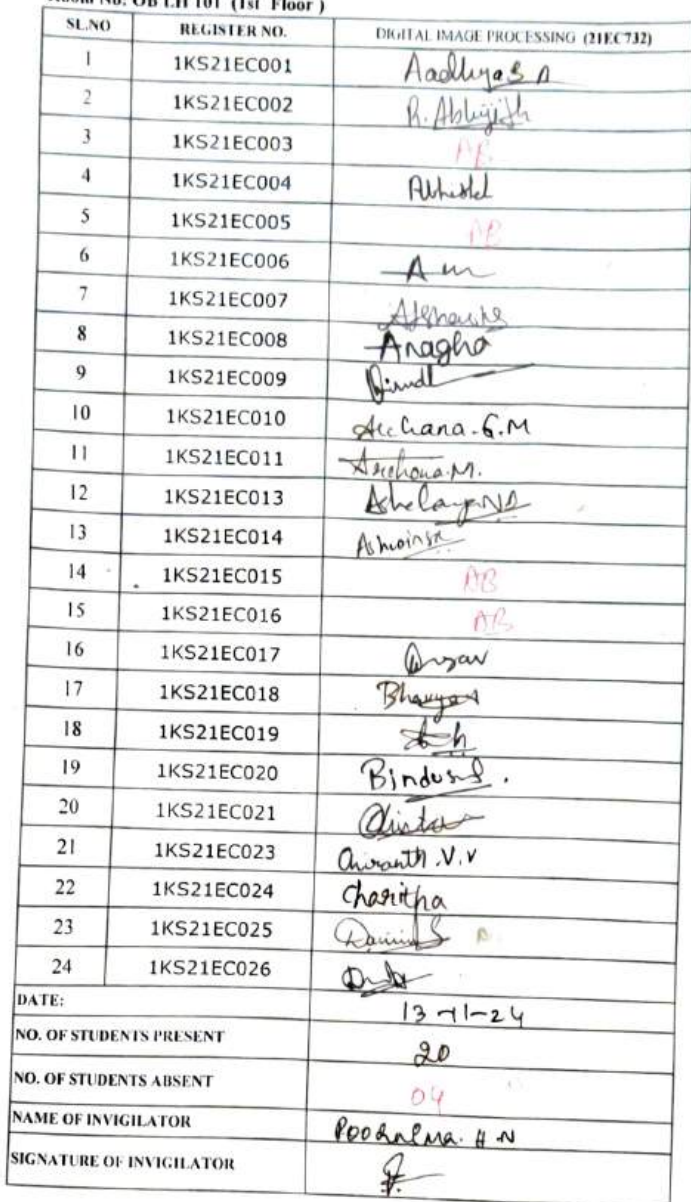 Room No. OB LH 101 (1st Floor )
SL.NO REGISTER NO. DIGITAL IMAGE PROCESSING (21EC732)
1 1KS21EC001 Aadhya S A
2 1KS21EC002 R. Abhijith
3 1KS21EC003 AB
4 1KS21EC004
5 1KS21EC005 AB
6 1KS21EC006
7 1KS21EC007
8 1KS21EC008 Anagha
9 1KS21EC009
10 1KS21EC010 Archana.G.M
11 1KS21EC011 Archana.M.
12 1KS21EC013
13 1KS21EC014
14 1KS21EC015 AB
15 1KS21EC016 AB
16 1KS21EC017
17 1KS21EC018
18 1KS21EC019
19 1KS21EC020
20 1KS21EC021
21 1KS21EC023 Chiranth.V.V
22 1KS21EC024 Charitha
23 1KS21EC025
24 1KS21EC026
DATE: 13-11-24
NO. OF STUDENTS PRESENT 20
NO. OF STUDENTS ABSENT 04
NAME OF INVIGILATOR H N
SIGNATURE OF INVIGILATOR